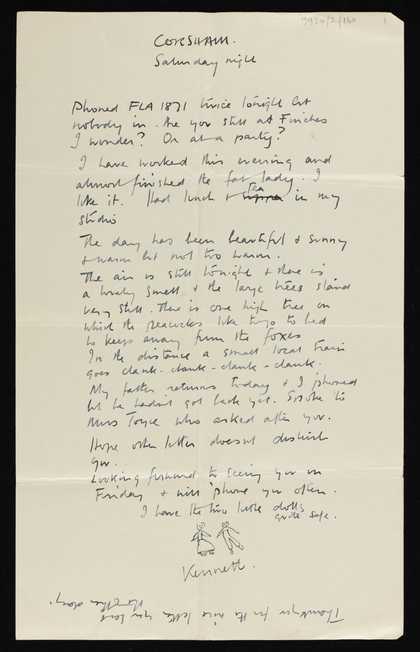 CORSHAM.
Saturday night
Phoned FLA 1871 twice tonight but
nobody in. Are you still at Finches
I wonder? Or at a party?
I have worked this evening and
almost finished the fat lady. I
like it. Had lunch & supper tea in my
studio
The day has been beautiful & sunny
& warm but not too warm.
The air is still tonight & there is
a lovely smell & the large trees stand
very still. There is one high tree on
which the peacocks like to go to bed
to keep away from the foxes
In the distance a small local train
goes clank-clank-clank-clank.
My father returns today & I phoned
but he hadn't got back yet. Spoke to
Miss Joyce who asked after you.
Hope other letter doesn't disturb
you.
Looking forward to seeing you on
Friday & will 'phone you often.
I have the two little dolls
quite safe.
Kenneth.
Thank you for the nice letter you sent
the other day.